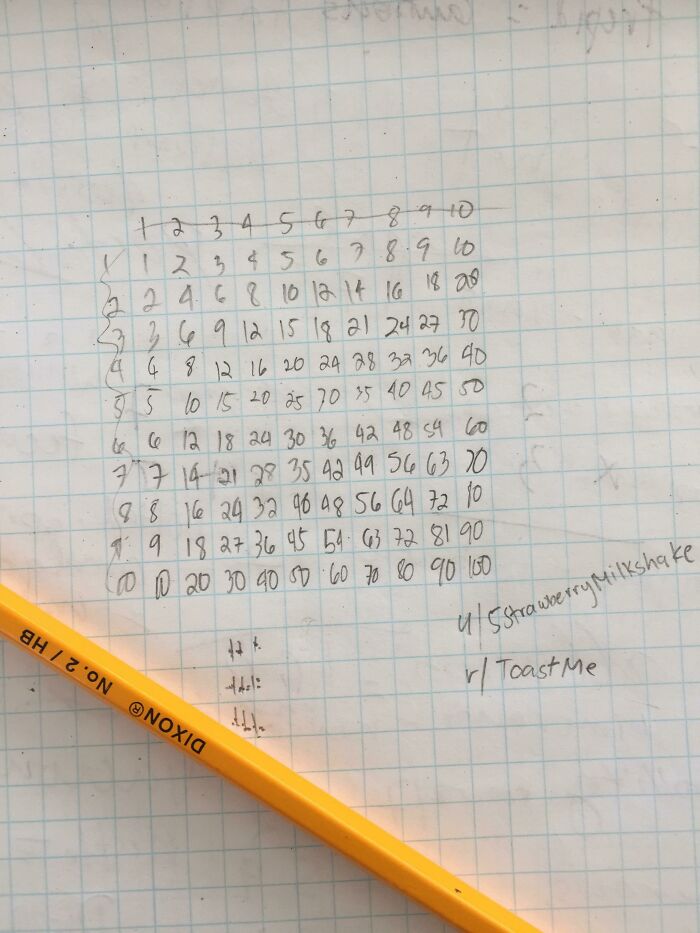 1 2 3 4 5 6 7 8 9 10
1 1 2 3 4 5 6 7 8 9 10
2 2 4 6 8 10 12 14 16 18 20
3 3 6 9 12 15 18 21 24 27 30
4 4 8 12 16 20 24 28 32 36 40
5 5 10 15 20 25 30 35 40 45 50
6 6 12 18 24 30 36 42 48 54 60
7 7 14 21 28 35 42 49 56 63 70
8 8 16 24 32 40 48 56 64 72 80
9 9 18 27 36 45 54 63 72 81 90
10 10 20 30 40 50 60 70 80 90 100
u/5StrawberryMilkshake
r/ToastMe
DIXON® No. 2 / HB